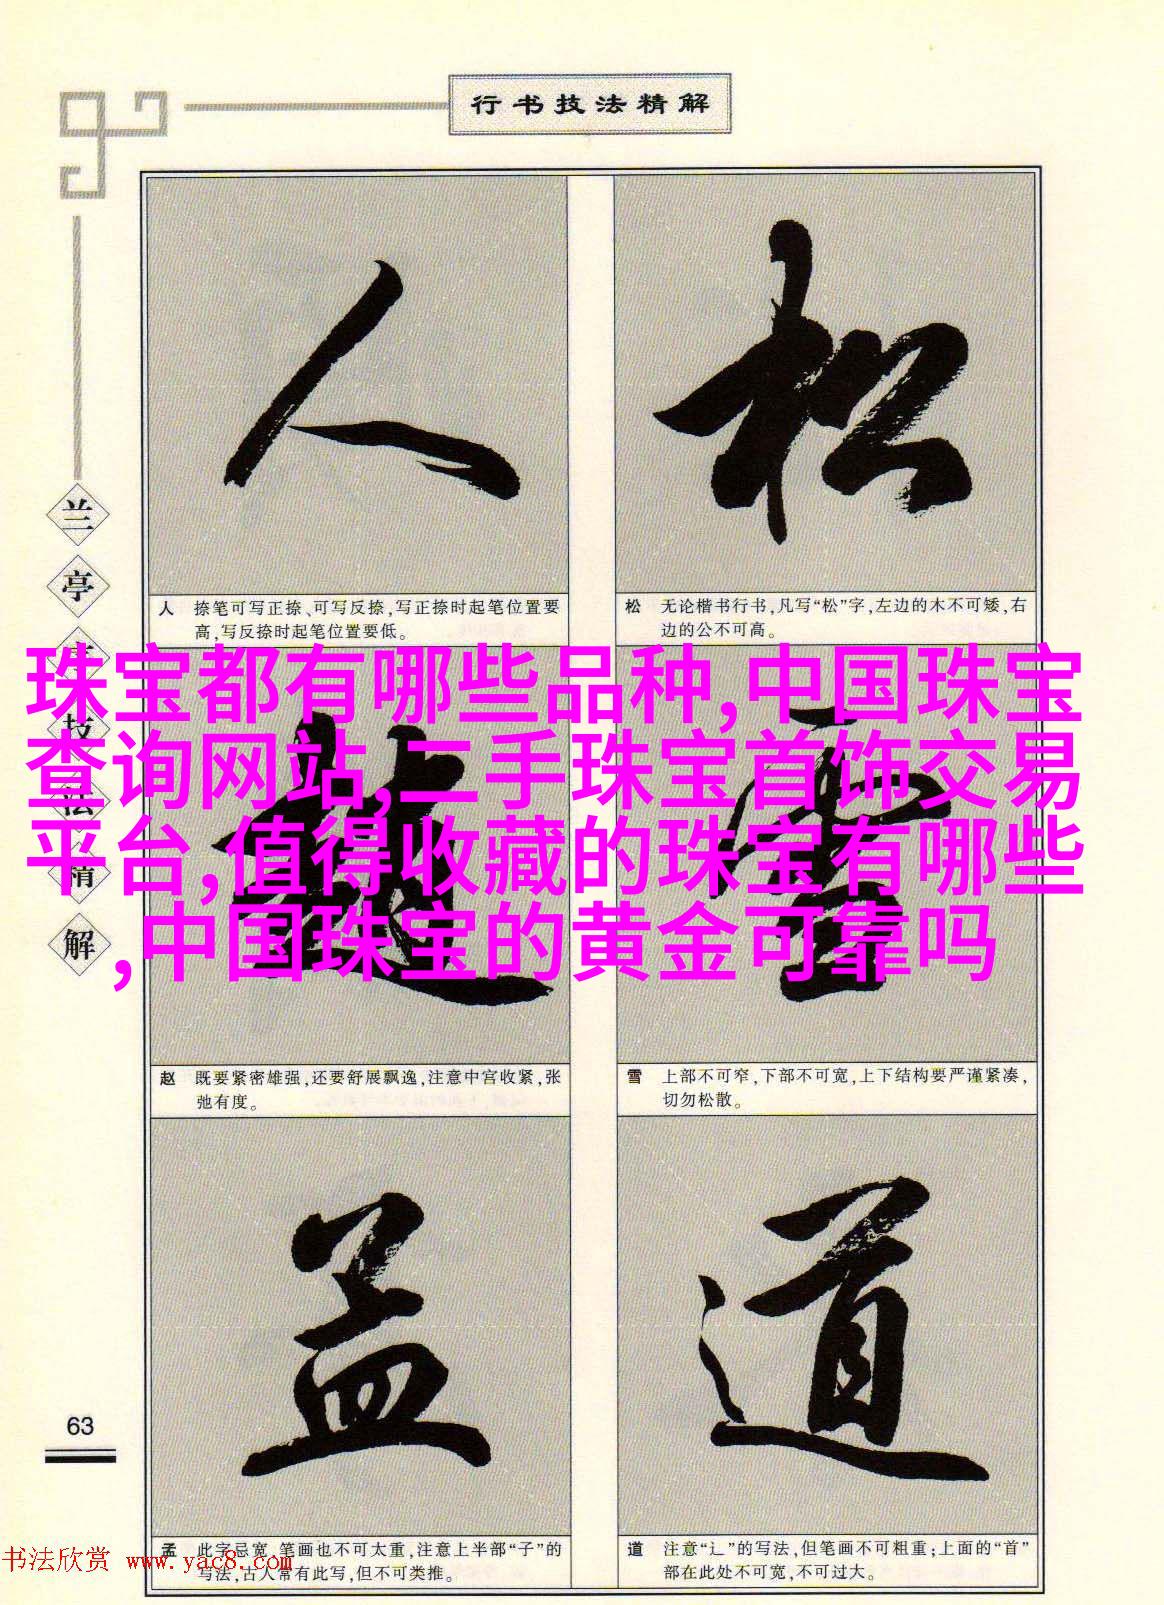 行书技法精解
人
松
人 捺笔可写正捺、可写反捺,写正捺时起笔位置要
高,写反捺时起笔位置要低。
松 无论楷书行书,凡写“松”字,左边的木不可矮,右
边的公不可高。
珠宝都有哪些品种,中国珠宝
查询网站,二手珠宝首饰交易
平台,值得收藏的珠宝有哪些
,中国珠宝的黄金可靠吗
赵
雪
赵 既要紧密雄强,还要舒展飘逸,注意中宫收紧,张
弛有度。
雪 上部不可窄,下部不可宽,上下结构要严谨紧凑,
切勿松散。
孟
道
孟 此字忌宽,笔画也不可太重,注意上半部“子”的
写法,古人常有此写,但不可类推。
道 注意“辶”的写法,但笔画不可粗重;上面的“首”
部在此处不可宽,不可过大。
兰
亭
序
技
法
精
解
63
书法欣赏 www.yac8.com